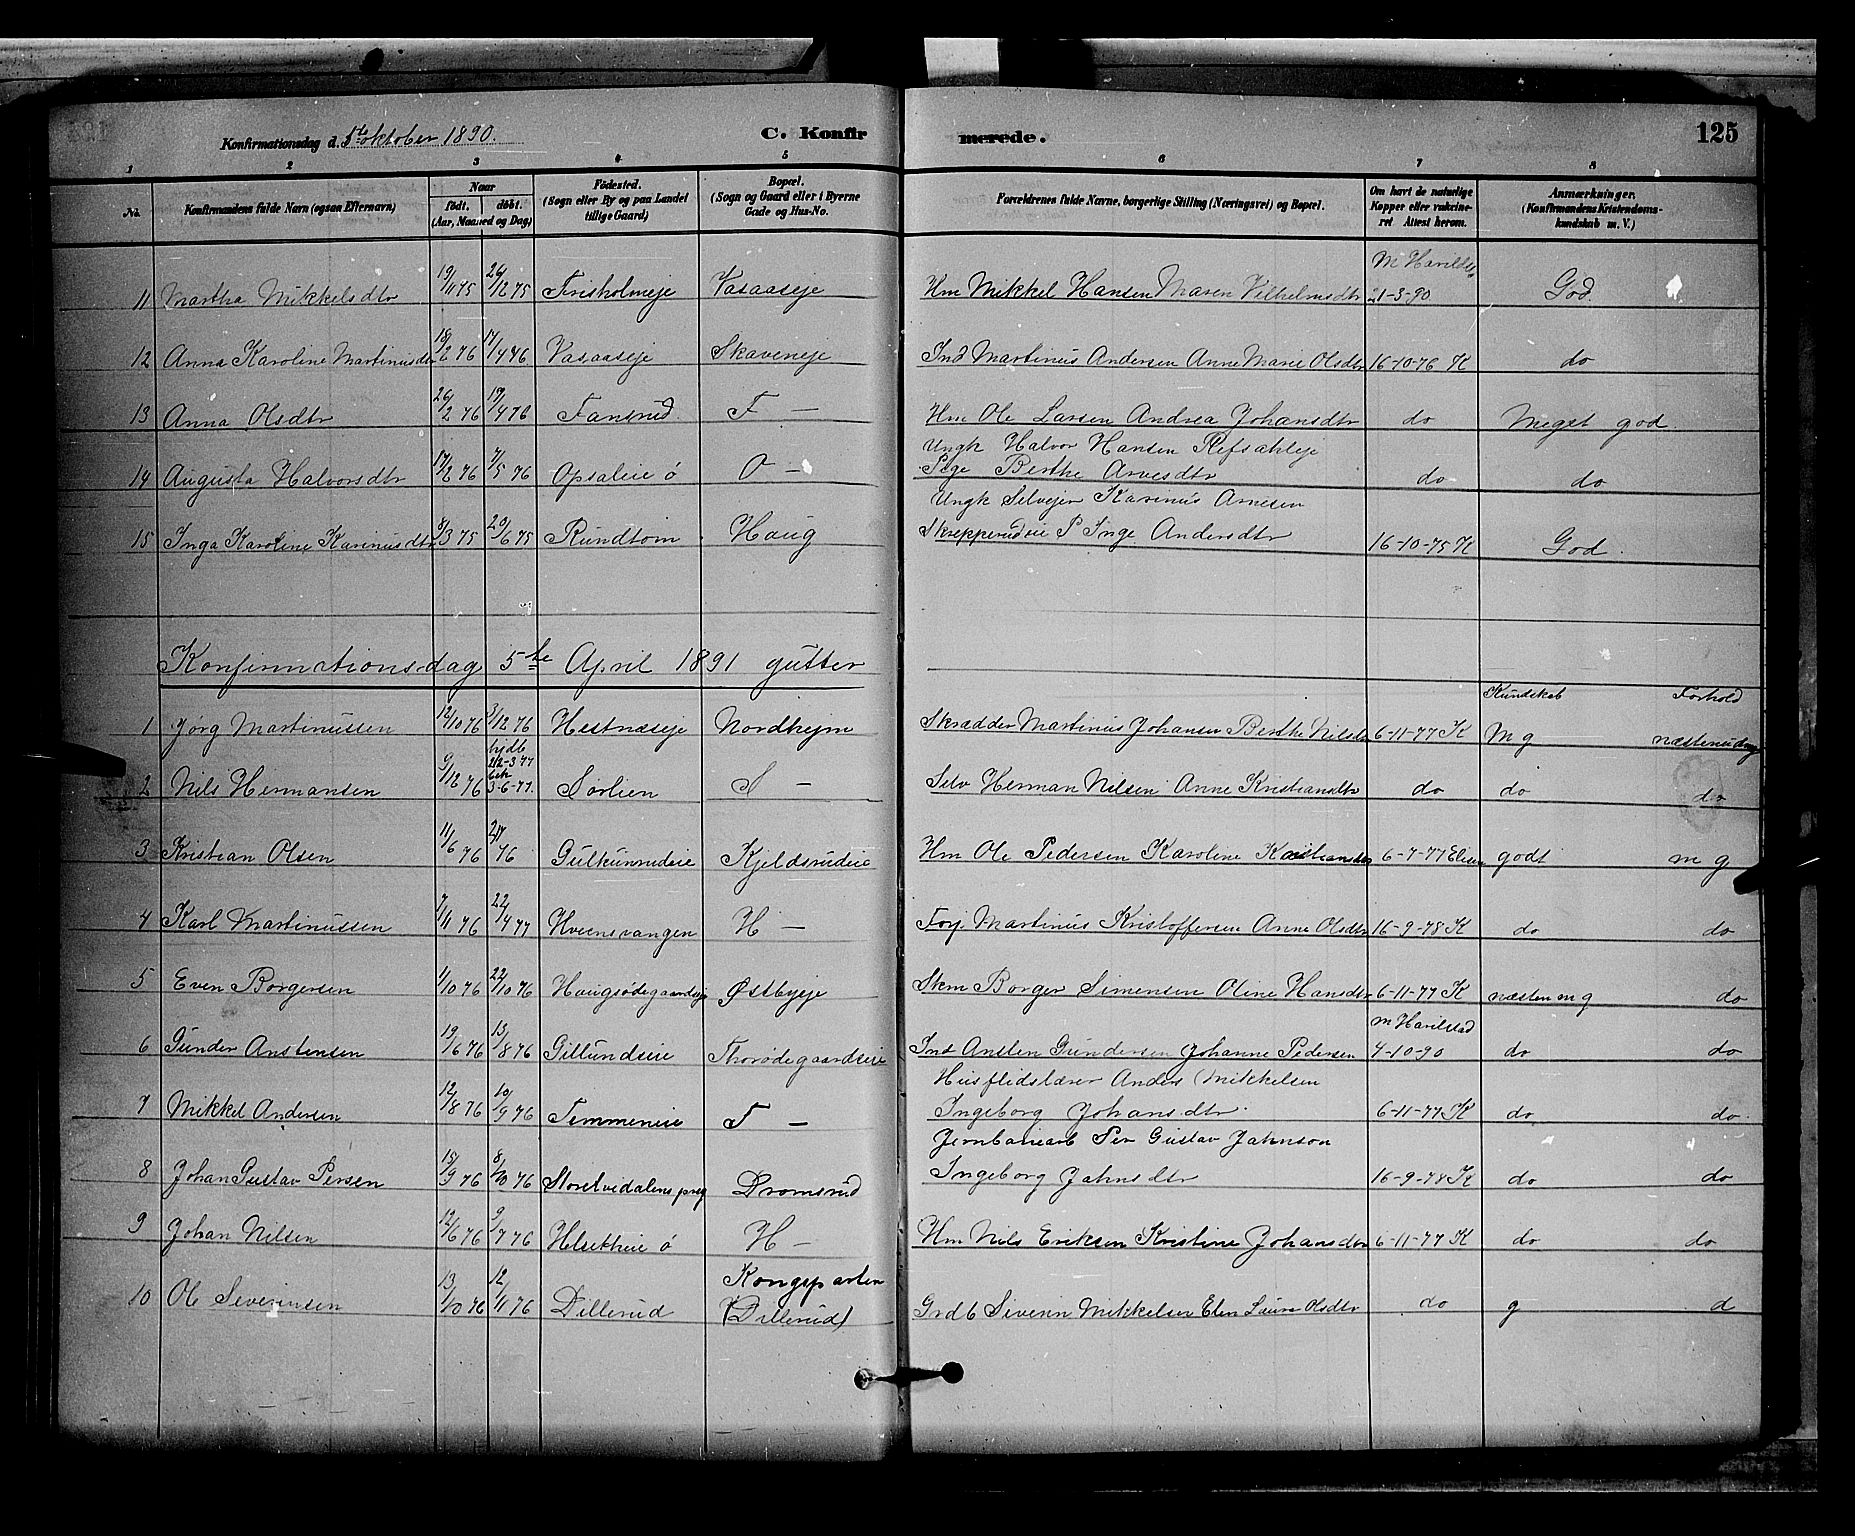 Konfirmationsdag d. 5te oktober 1890. C. Konfirmerede. 125
1 2 3 4 5 6 7 8
No. Konfirmandens fulde Navn (ogsaa Efternavn) Naar født. døbt. (Aar, Maaned og Dag) Fødested. (Sogn eller By og paa Landet tillige Gaard) Bopæl. (Sogn og Gaard eller i Byerne Gade og Hus-No. Forældrenes fulde Navne, borgerlige Stilling (Næringsvei) og Bopæl. Om havt de naturlige Kopper eller vakcineret Attest herom. Anmærkninger. (Konfirmandens Kristendomskundskab m. V.)
11 Martha Mikkelsdtr 19/11 75 26/12 75 Frisholmeje Vasaaseje Hm Mikkel Hansen Maren Vilhelmsdtr 21-3-90 God
12 Anna Karoline Martinusdtr 18/2 76 17/4 76 Vasaaseje Skaveneje Ind Martinus Andersen Anne Marie Olsdtr 16-10-76 K do
13 Anna Olsdtr 26/2 76 17/4 76 Fansrud F — Hm Ole Larsen Andrea Johansdtr do Meget god
Ungk Halvor Hansen Refsahleje
14 Augusta Halvorsdtr 17/2 76 7/5 76 Opsaleie ø O — Pige Berthe Arvesdtr do do
Ungk Selvejer Karinus Arnesen
15 Inga Karoline Karinusdtr 8/3 75 20/6 75 Rundtom Haug Skrepperudeie P Inge Andersdtr 16-10-75 K God
Konfirmationsdag 5te April 1891 gutter
Kundskab Forhold
1 Jørg Martinussen 12/10 76 3/12 76 Hestnæseje Nordhejm Skrædder Martinus Johansen Berthe Nilsdtr 6-11-77 K Mg næsten udm
hjdb
2 Nils Hermansen 9/12 76 22-3-77 bek 3-6-77. Sørlien S — Selv Herman Nilsen Anne Kristiansdtr do do do
3 Kristian Olsen 11/6 76 76 Gulkunrudeie Kjeldsrudeie Hm Ole Pedersen Karoline Kristiansdtr 6-7-77 godt m g
4 Karl Martinussen 7/11 76 22/4 77 Hveensvangen H — Forj Martinus Kristoffersen Anne Olsdtr 16-9-78 K do do
5 Even Borgersen 1/10 76 22/10 76 Haugsødegaardseje Østbyeje Skm Borger Simensen Oline Hansdtr 6-11-77 K næsten m g do
M Harildstad
6 Gunder Anstensen 19/6 76 13/8 76 Gillundseie Thorødegaardseie Ind Ansten Gundersen Johanne Pedersen 4-10-90 do do
Husflidslærer Anders Mikkelsen
7 Mikkel Andersen 12/8 76 10/9 76 Temmeneie T — Ingeborg Johansdtr 6-11-77 K do do
Jernbanearb Per Gustav Jahnson
8 Johan Gustav Persen 15/9 76 8/10 76 Storelvedalens preg Dromsrud Ingeborg Jahnsdtr 16-9-78 K do do
9 Johan Nilsen 12/6 76 9/7 76 Helsetheie ø H — Hm Nils Eriksen Kristine Johansdtr 6-11-77 K do do
Kongeparten
10 Ole Severinsen 13/10 76 12/11 76 Dillerud (Dillerud) Grdb Siverin Mikkelsen Elen Laura Olsdtr do g d